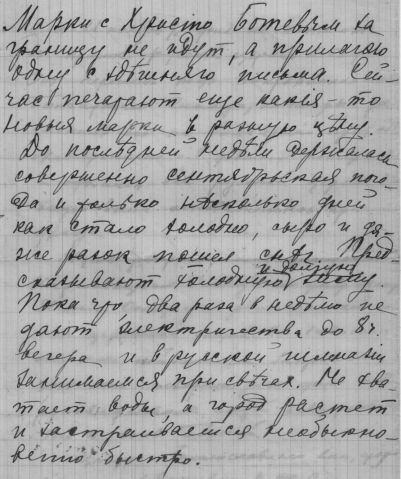 Марки с Христо Ботевым за
границу не идут, а прилагаю
одну с здѣшняго письма. Сей-
час печатают еще какія-то
новыя марки в разную цѣну.
До послѣдней недѣли держалась
совершенно сентябрьская пого-
да и только нѣсколько дней
как стало холодно, сыро и да-
же разок пошел снѣг. Пред-
сказывают холодную и долгую зиму.
Пока что, два раза в недѣлю не
дают электричества до 8 ч.
вечера и в русской гимназіи
занимаемся при свѣчах. Не хва-
тает воды, а город растет
и застраивается необыкно-
венно быстро.